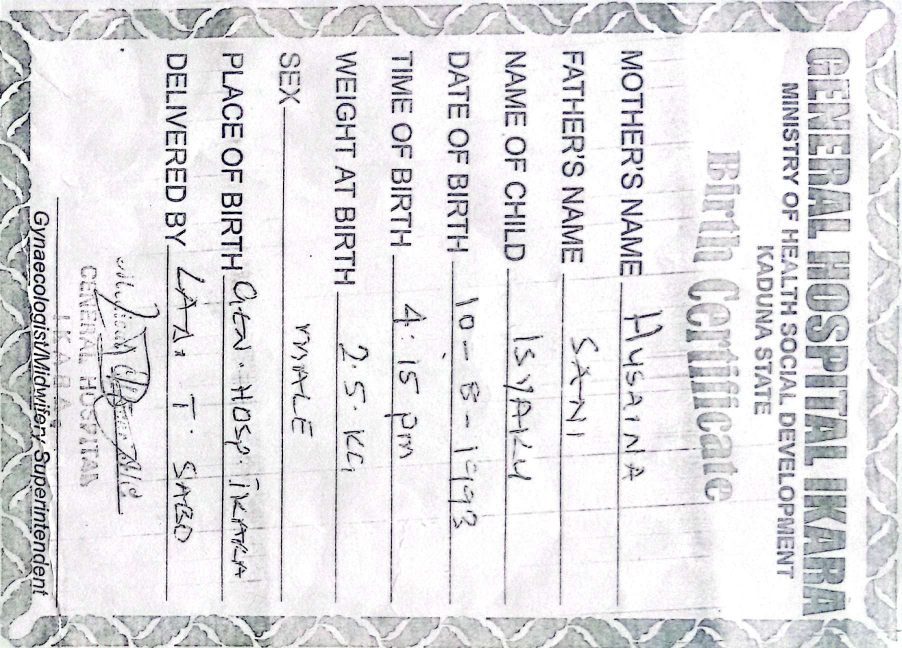 GENERAL HOSPITAL IKARA
MINISTRY OF HEALTH SOCIAL DEVELOPMENT
KADUNA STATE
Birth Certificate
MOTHER'S NAME HUSAINA
FATHER'S NAME SANI
NAME OF CHILD ISYAKU
DATE OF BIRTH 10-8-1993
TIME OF BIRTH 4:15 pm
WEIGHT AT BIRTH 2.5.KG
SEX MALE
PLACE OF BIRTH GEN. HOSP. IKARA
DELIVERED BY LADI T. SABO
GENERAL HOSPITAL
IKARA
Gynaecologist/Midwifery Superintendent